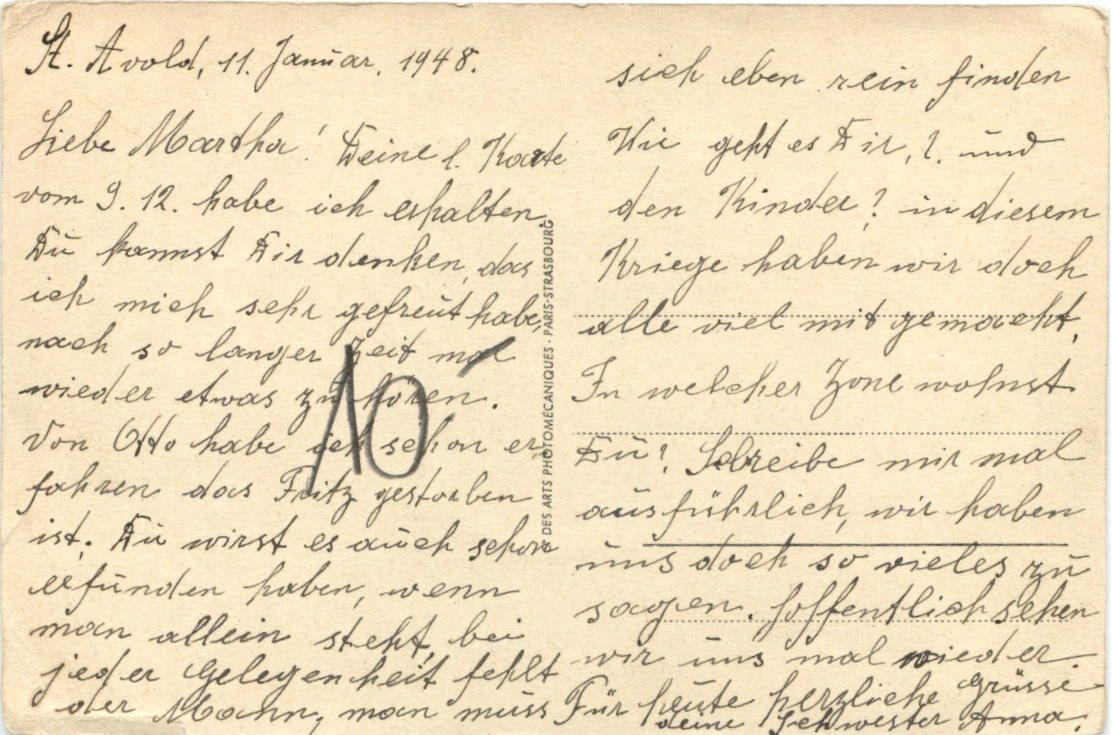 St. Avold, 11. Januar. 1948.
Liebe Martha! Deine l. Karte
vom 9. 12. habe ich erhalten,
Du kannst Dir denken, das
ich mich sehr gefreut habe,
nach so langer Zeit mal
wieder etwas zu hören.
Von Otto habe ich schon er
fahren das Fritz gestorben
ist. Du wirst es auch schon
erfunden haben, wenn
man allein steht, bei
jeder Gelegenheit fehlt
der Mann, man muss
sich eben rein finden
Wie geht es Dir,?. und
den Kinder? in diesem
Kriege haben wir doch
alle viel mit gemacht,
In welcher Zone wohnst
Du? Schreibe mir mal
ausführlich, wir haben
uns doch so vieles zu
sagen. Hoffentlich sehen
wir uns mal wieder.
Für heute herzliche Grüsse
deine Schwester Anna.
10
DES ARTS PHOTOMECANIQUES - PARIS-STRASBOURG